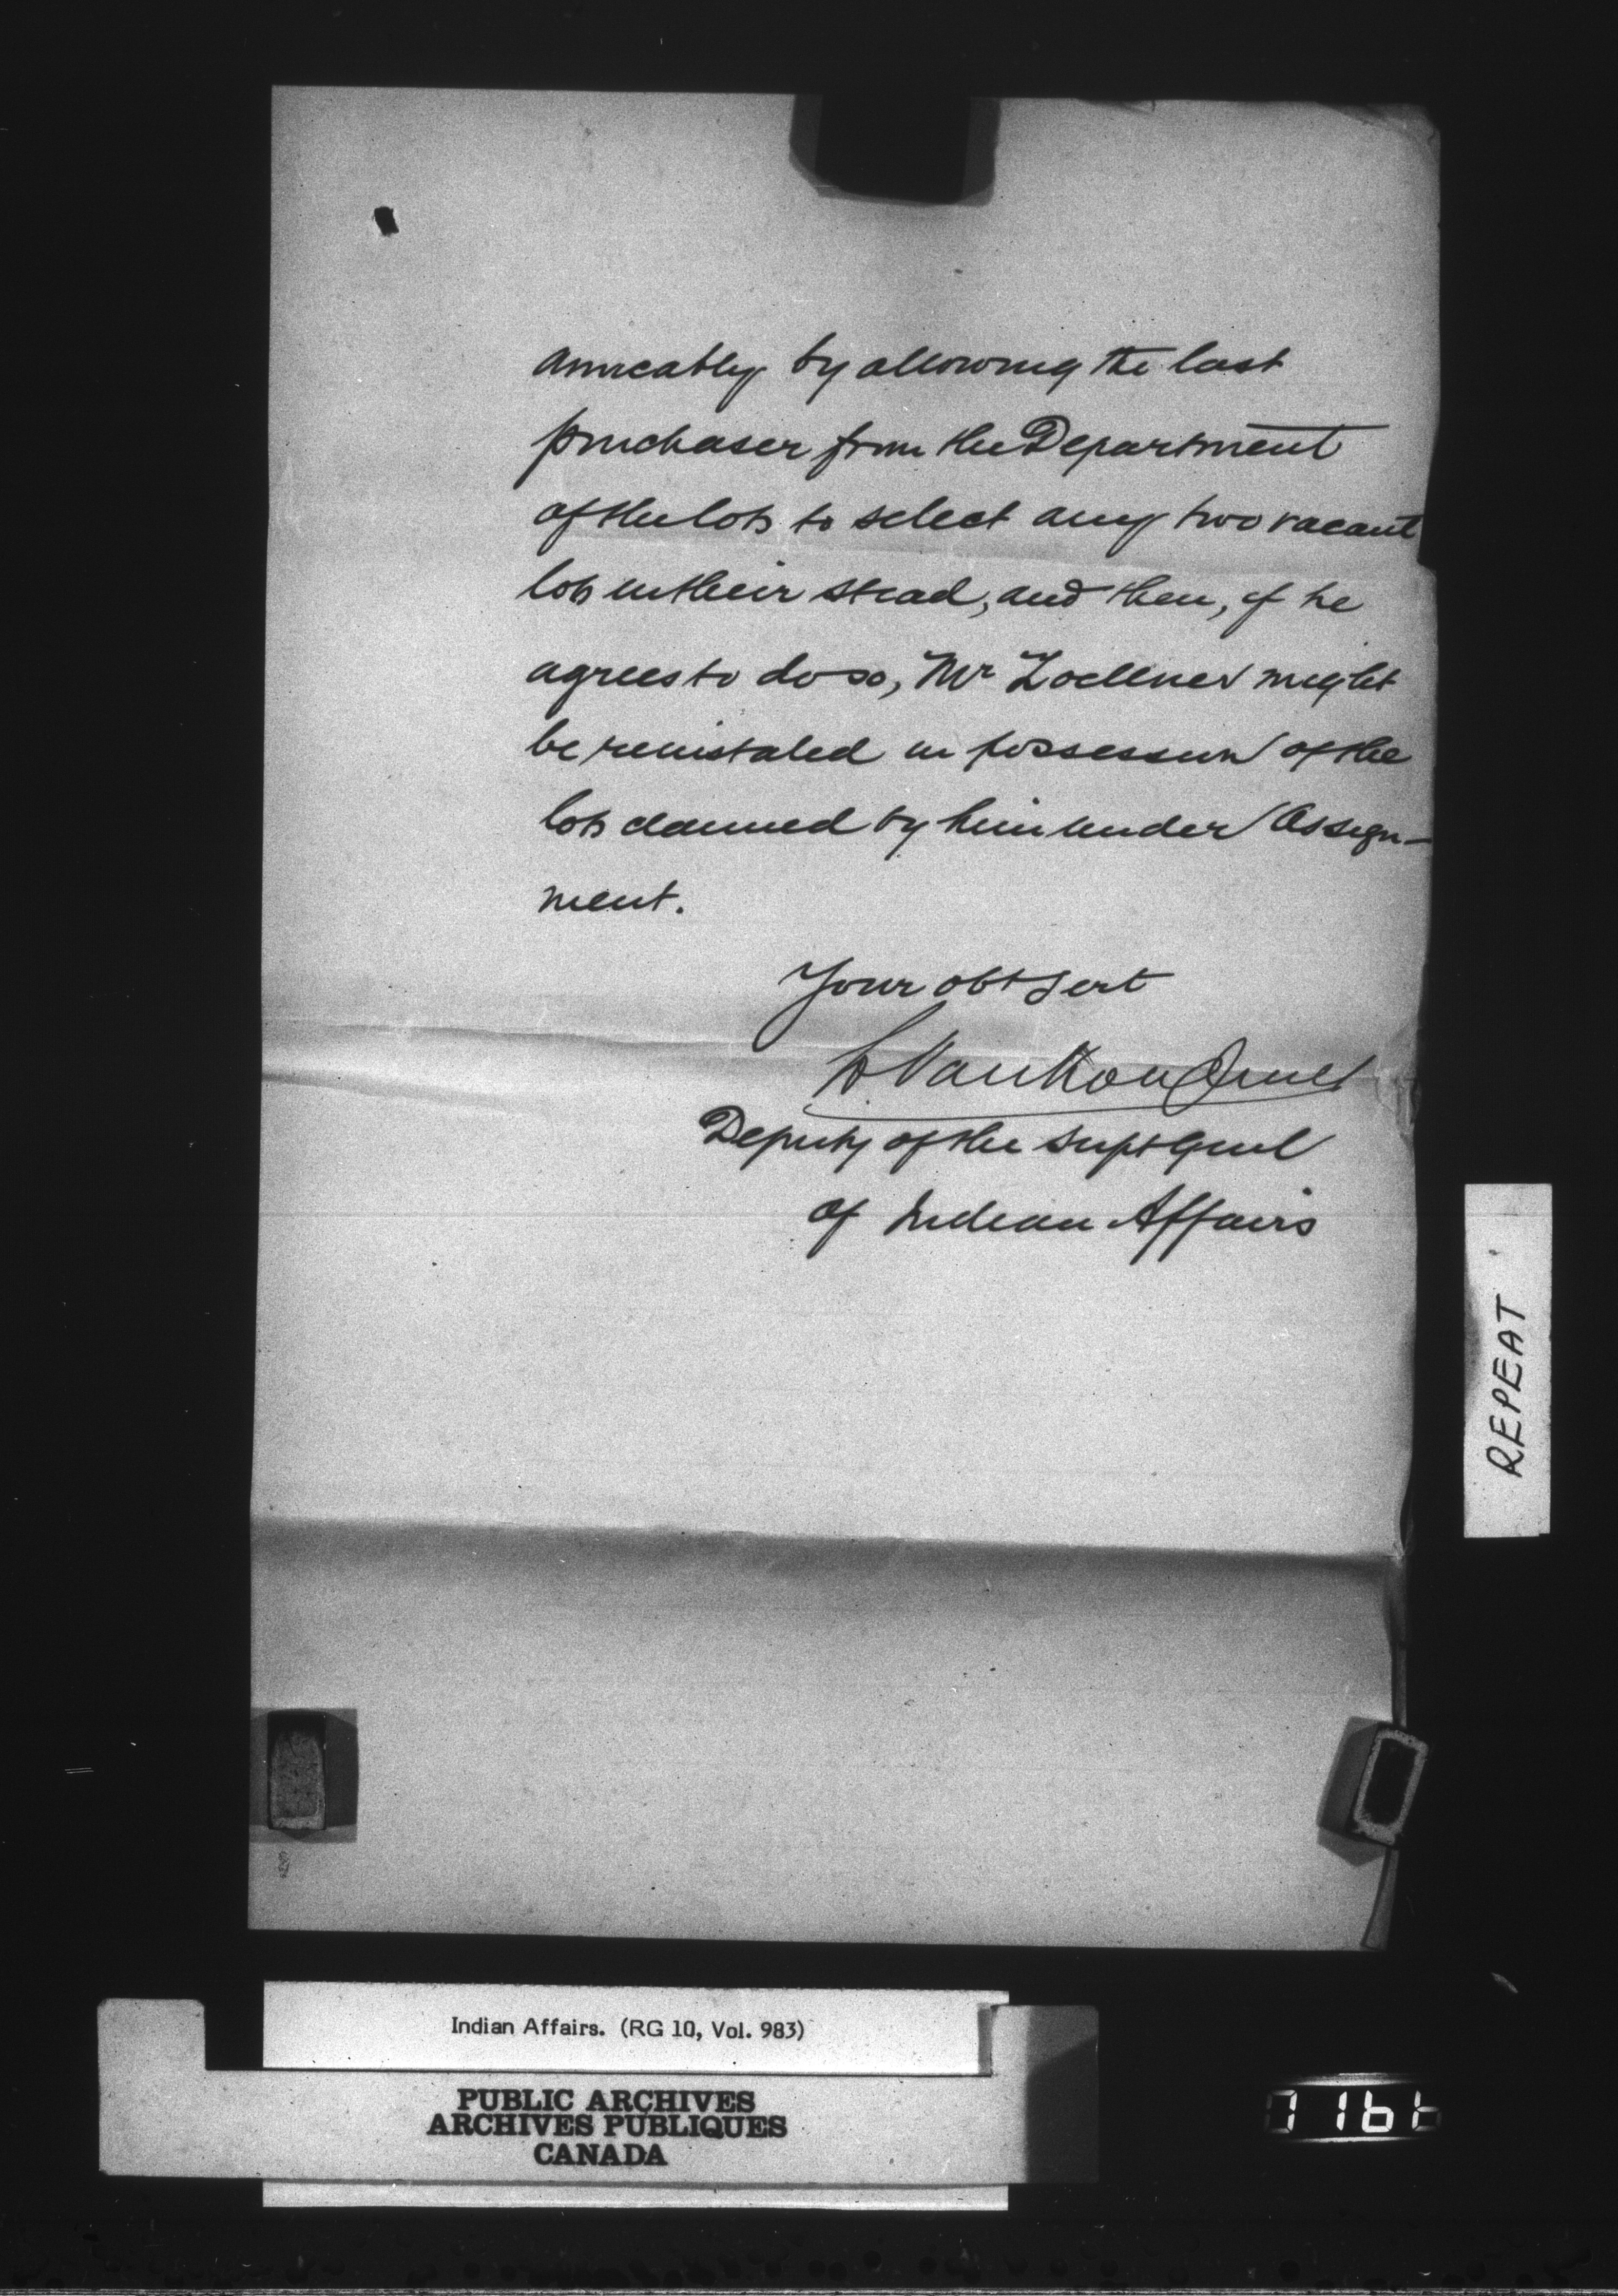 amicably by allowing the last
purchaser from the Department
of the lots to select any two vacant
lots in their stead, and then, if he
agrees to do so, Mr Zoellner might
be reinstated in possession of the
lots claimed by him under Assign-
ment.
Your obt sert
L VanKoughnet
Deputy of the Supt Genl
of Indian Affairs
REPEAT
Indian Affairs. (RG 10, Vol. 983)
PUBLIC ARCHIVES
ARCHIVES PUBLIQUES
CANADA